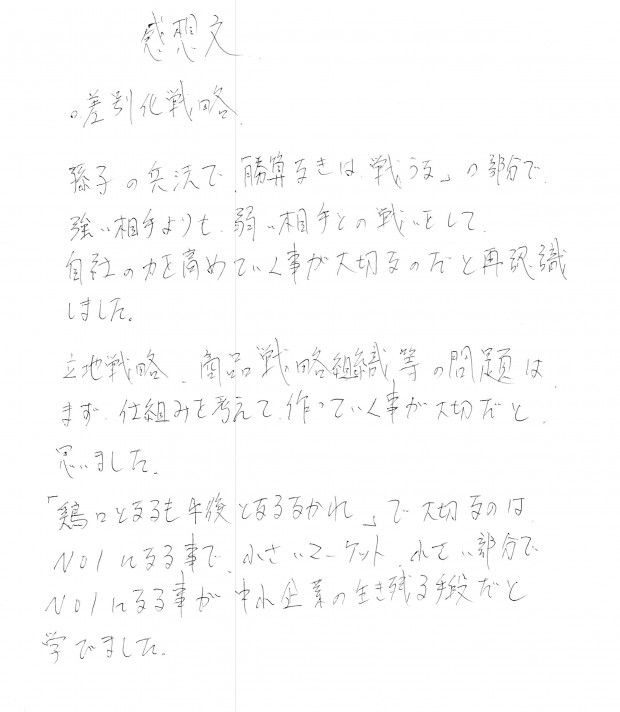 感想文
○差別化戦略
孫子の兵法で、「勝算なきは戦うな」の部分で、
強い相手よりも、弱い相手との戦いをして、
自社の力を高めていく事が大切なのだと再認識
しました。
立地戦略、商品戦略組織等の問題は、
まず、仕組みを考えて、作っていく事が大切だと、
思いました。
「鶏口となるも牛後となるなかれ」で大切なのは、
NO1になる事で、小さいマーケット、小さい部分で
NO1になる事が中小企業の生き残る手段だと
学でました。